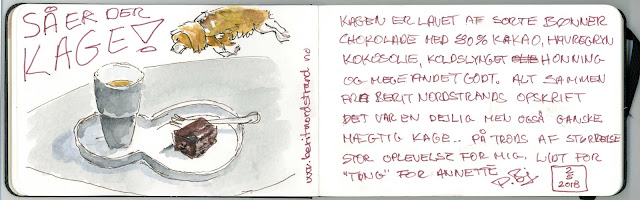 SÅ ER DER
KAGE!
www.beritnordstrand.no
KAGEN ER LAVET AF SORTE BØNNER
CHOKOLADE MED 80% KAKAO, HAVREGRYN
KOKOSOLIE, KOLDSLYNGET HONNING
OG MEGET ANDET GODT. ALT SAMMEN
FRA BERIT NORDSTRANDS OPSKRIFT
DET VAR EN DEJLIG MEN OGSÅ GANSKE
MÆGTIG KAGE.. PÅ TRODS AF STØRRELSE
STOR OPLEVELSE FOR MIG. LIDT FOR
"TUNG" FOR ANNETTE
2/5
2018